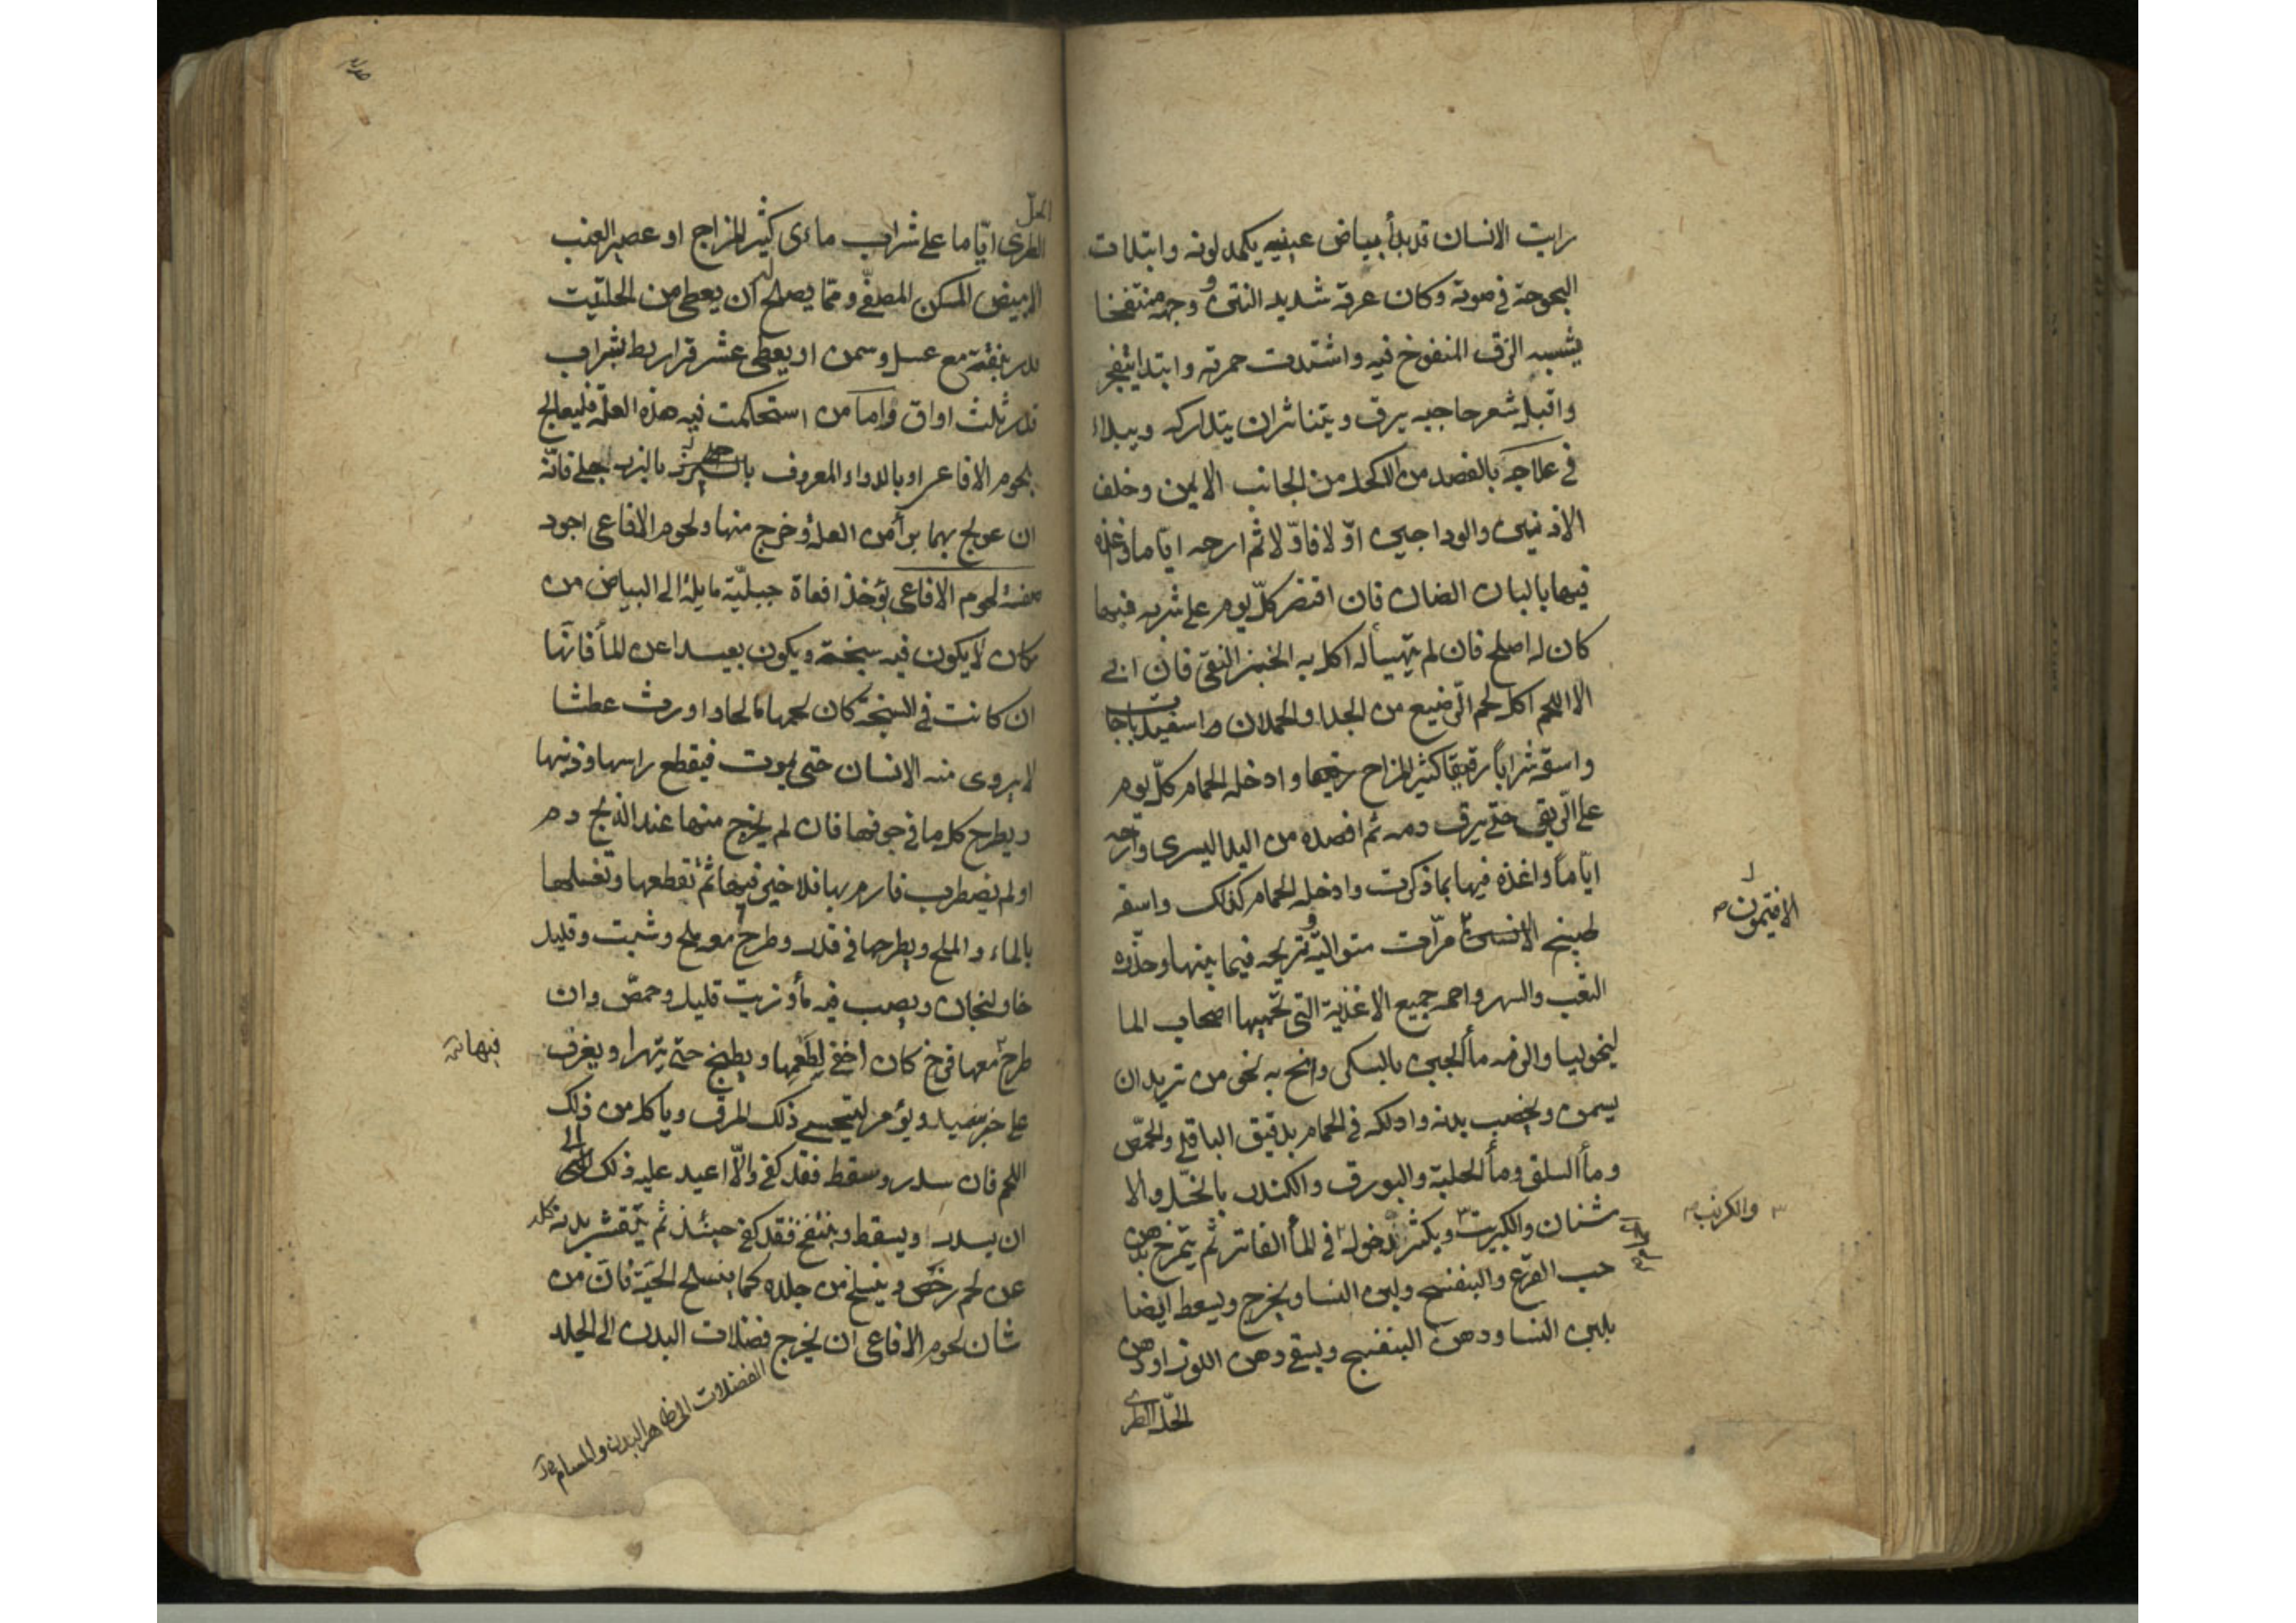 رايت الانسان قد بدأ بياض عينيه يكمد لونه وابتدات
البحوحة في صوته وكان عرقه شديد النتن ووجهه منتفخا
يشبه الزق المنفوخ فيه واشتدت حمرته وابتدا يتفجر
واقبل شعر حاجبيه يرق ويتناثر ان يتداركه ويبداء
في علاجه بالفصد من الاكحل من الجانب الايمن وخلف
الاذنين والوداجين اوّلا فاوّلا ثم ارحه ايّاما وغذه
فيها بالبان الضان فان اقتصر كلّ يوم على شربه فيها
كان له اصلح فان لم يتهيأ له اكل به الخبز النقي فان ابى
الا اللحم اكل لحم الرّضيع من الجدا والحملان اسفيدباجا
واسقه شراباً رقيقا كثير المزاج وادخله الحمام كلّ يوم
على الرّيق حتى يرق دمه ثم افصده من اليد اليسرى وارحه
ايّاماً واغذه فيها بما ذكرت وادخله الحمام كذلك واسقه
طبيخ مرّات متواليّة وتريحه فيما بينها وحذّره
الافتيمون
التعب والسهر واحمه جميع الاغذية التي تحميها اصحاب الما
لنخوليا والزمه مأ الجبن بالبسكى وانح به نحو من تريد ان
يسمن ويخصب بدنه وادلكه في الحمام بدقيق الباقلى والحمّص
ومأ السلق ومأ الحلبة والبورق والكندر بالخلّ والا
شنان والكبريت ويكثر دخوله في المأ الفاتر ثم يتمرخ بدهن
والكرنب
حب القرع والبنفسج ولبن النسا ويخرج ويسعط ايضا
بلبن النسا ودهن البنفسج ويسقى دهن اللوز او دهن
الحلّ الطرى
الحلّ
الطرى ايّاما على شراب مائى كثير المزاج او عصير العنب
الابيض المسكن المصفّى وممّا يصلح له ان يعطى من الحلتيت
قدر بندقة مع عسل وسمن او يعطى عشر قراريط بشراب
قدر ثلث اواق واما من استحكمت فيه هذه العلة فليعالج
بلحوم الافاعى او بالدواء المعروف بالبزرجلى فانّه
ان عولج بهما برأ من العلة وخرج منها ولحوم الافاعى اجود
صفة لحوم الافاعى يؤخذ افعاة جبليّة مايلة الى البياض من
مكان لا يكون فيه سبخة ويكون بعيدا عن المأ فانّها
ان كانت في السبخة كان لحمها مالحا واورث عطشا
لا يروى منه الانسان حتى يموت فيقطع راسها وذنبها
ويطرح كل ما في جوفها فان لم يخرج منها عند الذبح دم
او لم يضطرب فارم بها فلا خير فيها ثم تقطعها وتغسلها
بالماء والملح ويطرحها في قدر وطرح معه ملح وشبت وقليل
خاولنجان ويصب فيه مأ وزيت قليل وحمّص وان
طرح معها فرخ كان اخفى لطعمها ويطبخ حتى يتهرا ويغرف
فيها
على خبز سميد ويؤمر ليتحسى ذلك المرق وياكل من ذلك
اللحم فان سدر وسقط فقد كفى والّا اعيد عليه ذلك الى
ان يسدر ويسقط وينتفخ فقد كفى حينئذ ثم يتقشر بدنه كله
عن لحم رخص وينسلخ من جلده كما ينسلخ الحيّة فان من
شان لحوم الافاعى ان يخرج فضلات البدن الى الجلد
الفضلات الى ظاهر البدن والمسام